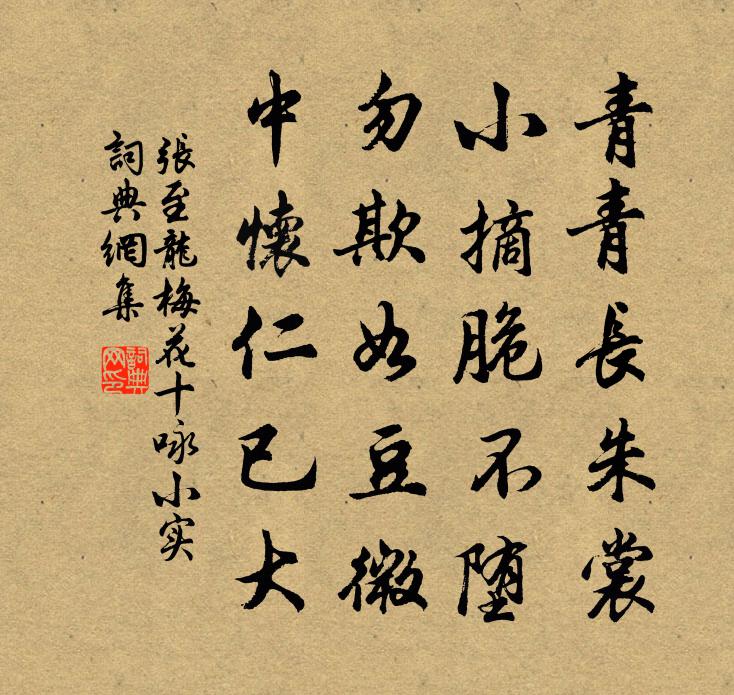 青青長朱裳
小摘脆不堕
勿欺如豆微
中懷仁已大
張至龍梅花十咏小实
詞典網集
詞典网印